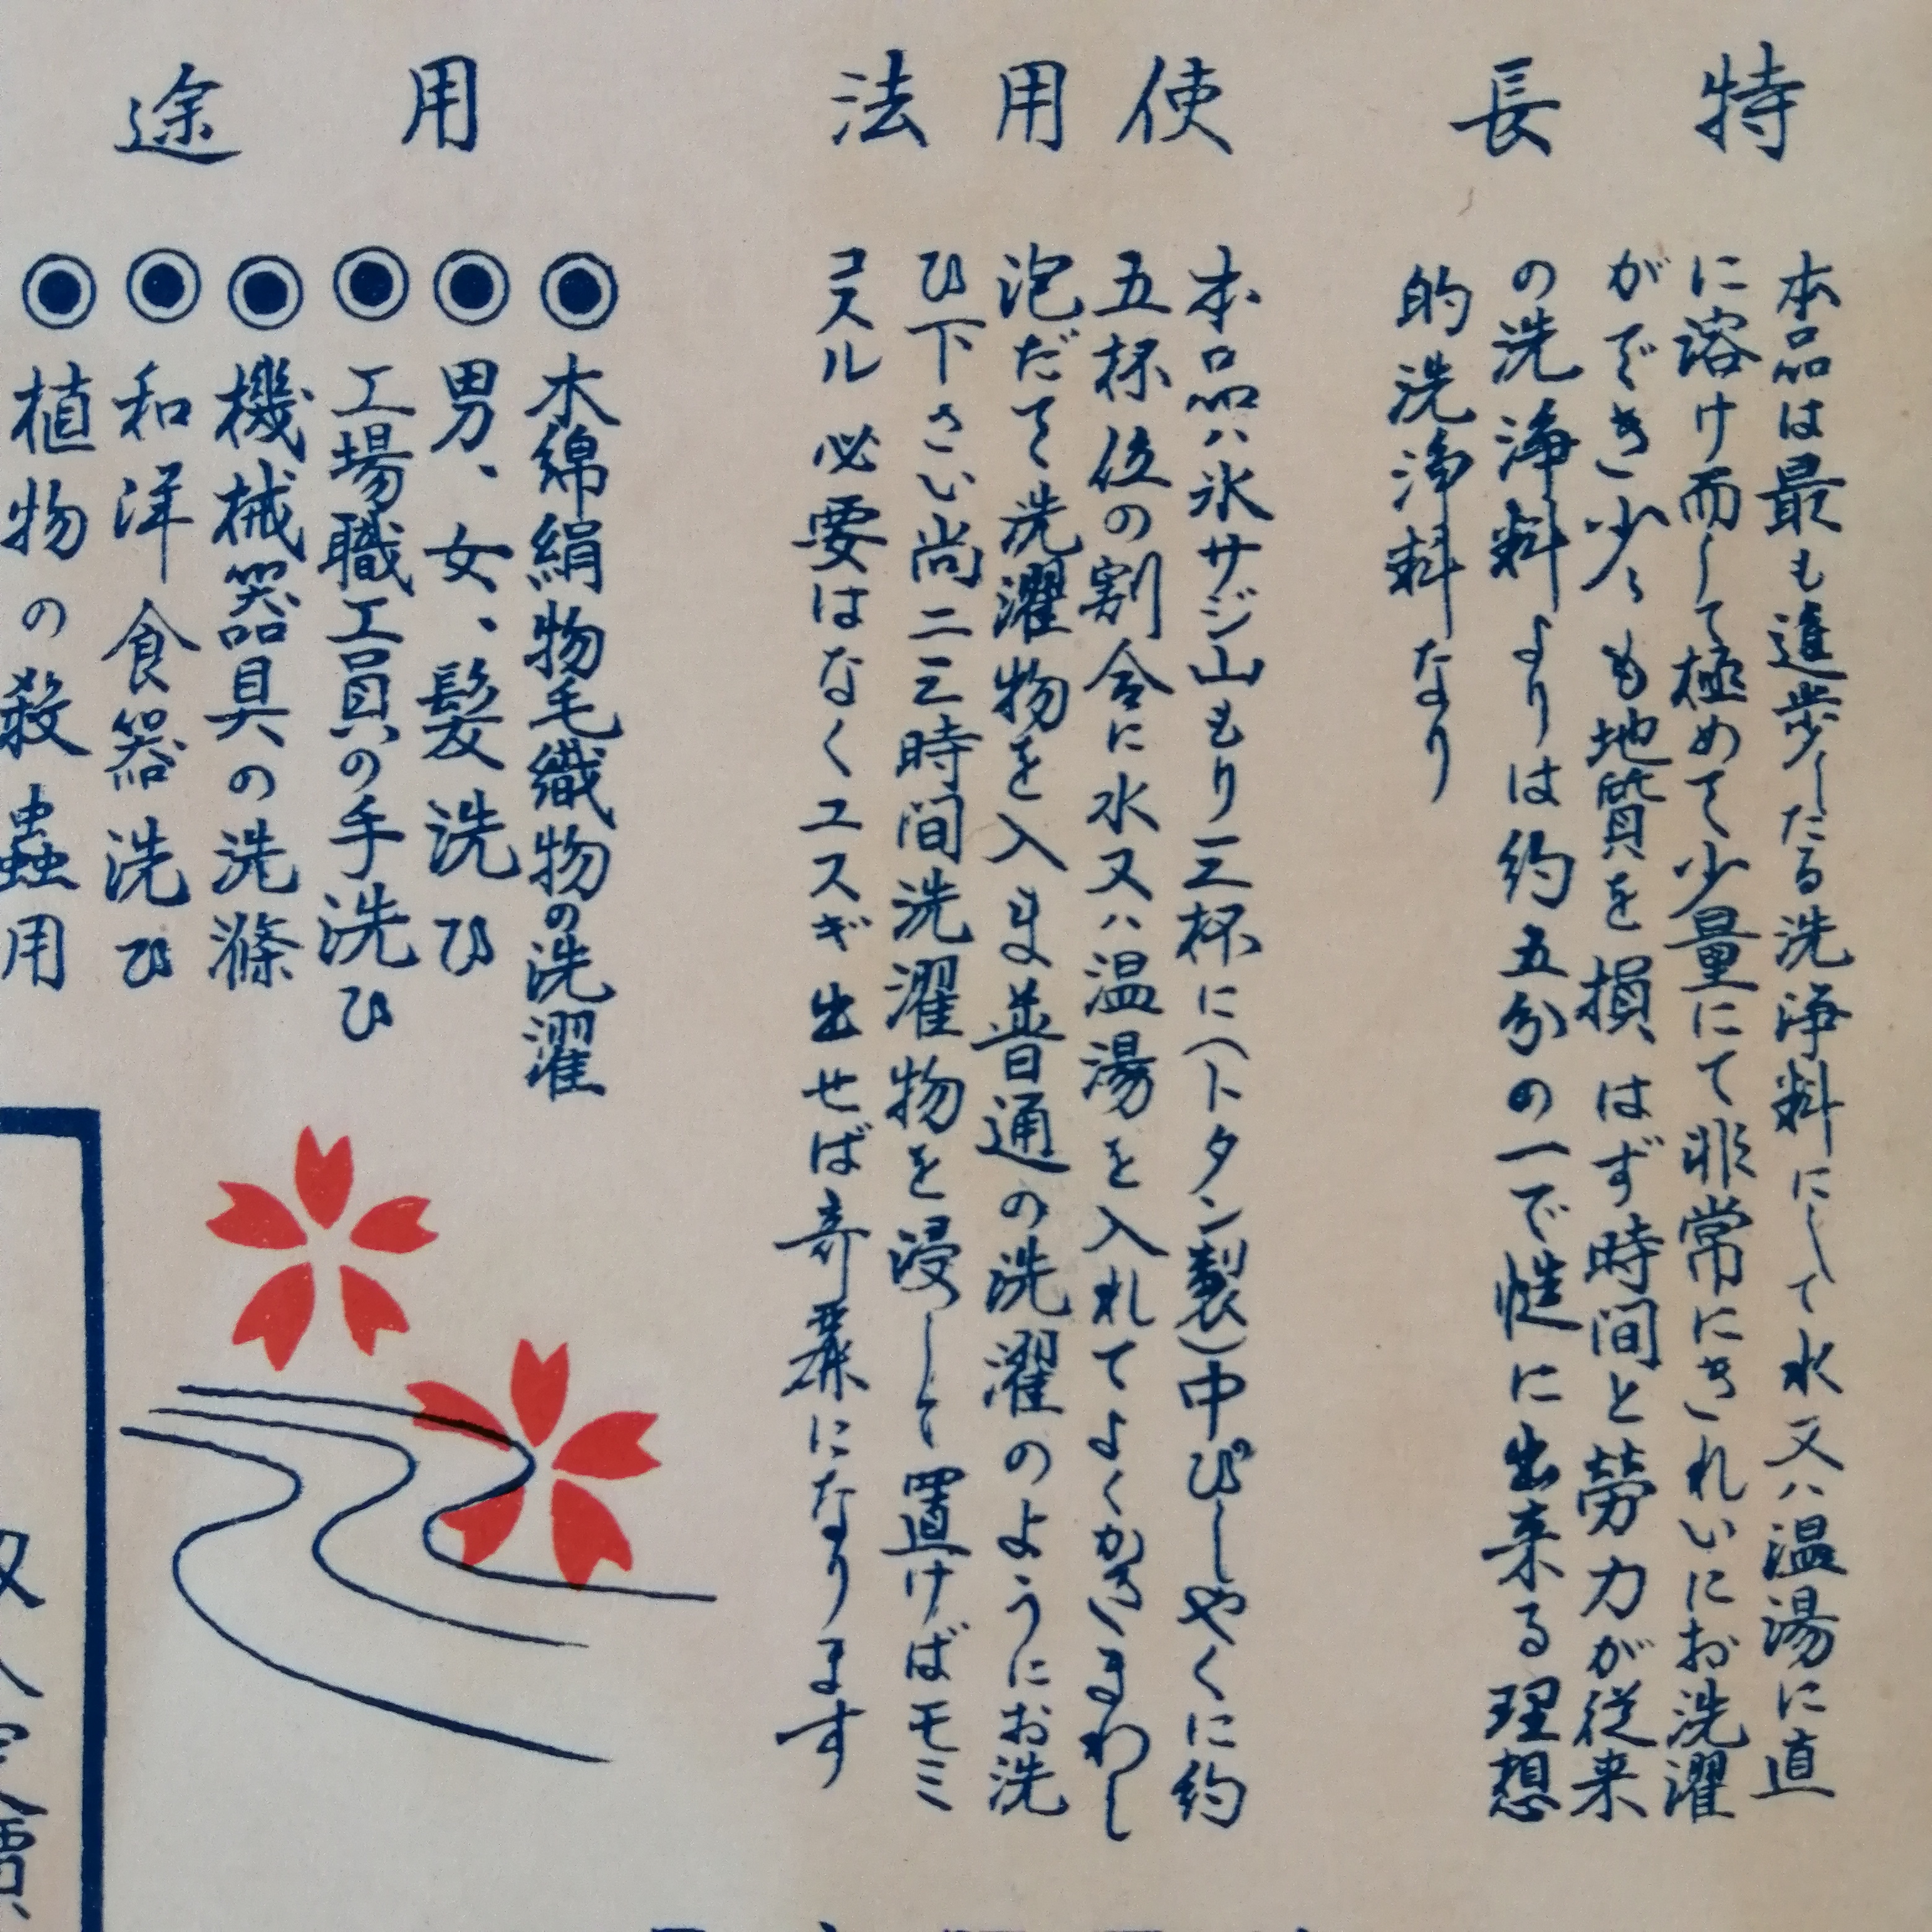 特長
本品は最も進歩したる洗浄料にして水又ハ温湯に直
に溶け而して極めて少量にて非常にきれいにお洗濯
ができ少しも地質を損はず時間と労力が従来
の洗浄料よりは約五分の一で徙に出来る理想
的洗浄料なり
使用法
本品ハ氷サジ山もり三杯に(トタン製)中ぴしやくに約
五杯位の割合に水又ハ温湯を入れてよくかきまわし
泡だて洗濯物を入ま普通の洗濯のようにお洗
ひ下さい尚二三時間洗濯物を浸して置けばモミ
コスル必要はなくユスギ出せば奇麗になります
用途
◉木綿絹物毛織物の洗濯
◉男、女、髪洗ひ
◉工場職工員の手洗ひ
◉機械器具の洗滌
◉和洋食器洗ひ
◉植物の殺蟲用